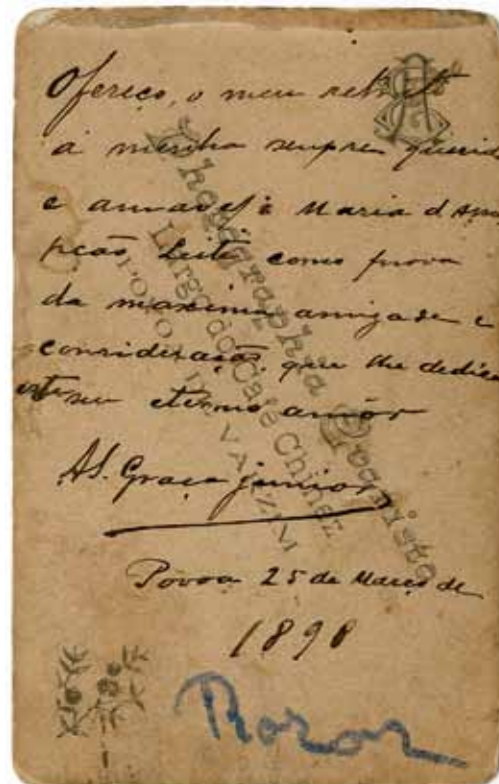 Ofereço, o meu retrato
á minha sempre querida
e amavel
Maria d'Assum
pção Leite como prova
da maxima amizade e
consideração que lhe dedica
este seu eterno amôr
AS. Graça junior
Povoa 25 de Março de
1898
Photographia Evaristo
Largo do Café Chinez
POVOA DE VARZIM